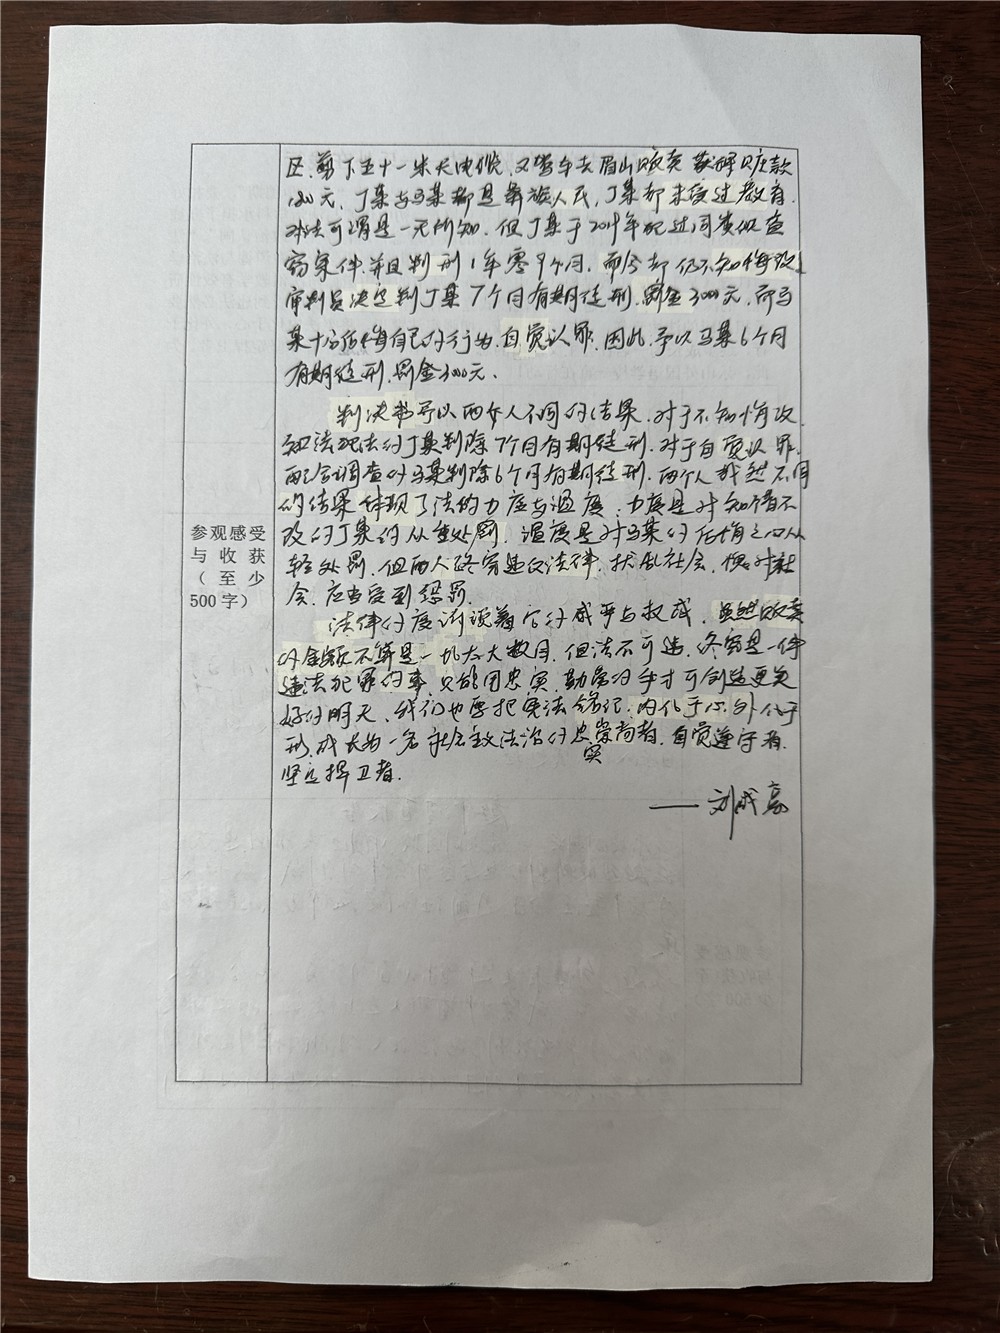 参观感受
与收获
（至少
500字）
区.剪下五十一米长电缆.又驾车去眉山贩卖获得赃款
1800元，丁某与马某都是彝族人民，丁某却未受过教育.
对法可谓是一无所知.但丁某于2019年犯过同类似盗
窃案件.并且判刑1年零9个月.而今却仍不知悔改，
审判员决定判丁某7个月有期徒刑.罚金3000元.而马
某十分后悔自己的行为.自觉认罪.因此.予以马某6个月
有期徒刑.罚金3000元.
判决书予以两女人不同的结果.对于不知悔改.
知法犯法的丁某判除7个月有期徒刑.对于自觉认罪.
配合调查的马某判除6个月有期徒刑.两个人截然不同
的结果体现了法的力度与温度：力度是对知错不
改的丁某的从重处罚.温度是对马某的后悔之心从
轻处罚.但两人终究违反法律.扰乱社会.愧对社
会.应当受到惩罚.
法律的度诉颂着它的威严与权威.虽然贩卖
的金额不算是一批太大数目.但法不可违.终究是一件
违法犯罪的事.只能用忠实.勤劳的手才可创造更美
好的明天.我们也要把宪法铭记.内化于心.外化于
形.成长为一名社会主义法治的忠实崇尚者.自觉遵守者.
坚定捍卫者.
——刘成高